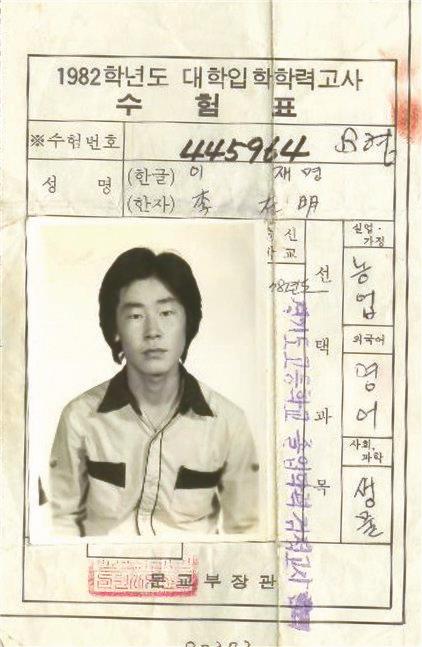 1982학년도 대학입학학력고사
수 험 표
※수험번호 445964
성 명 (한글) 이 재명
(한자) 李 在 明
신
교
선 택 과 목
실업·
가정
농업
외국어
영어
사회,
과학
생물
82년도
문교부장관